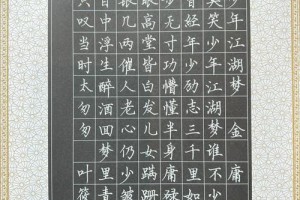 少年江湖梦 金庸
笑少年江湖梦谁不少
经年少志三千里如
无寸功懵懂半身庸禄
眼高堂皆白发儿女蹒
几两催人老心仍少皱
中浮生醉酒回梦里青
只叹当时太匆匆 叶